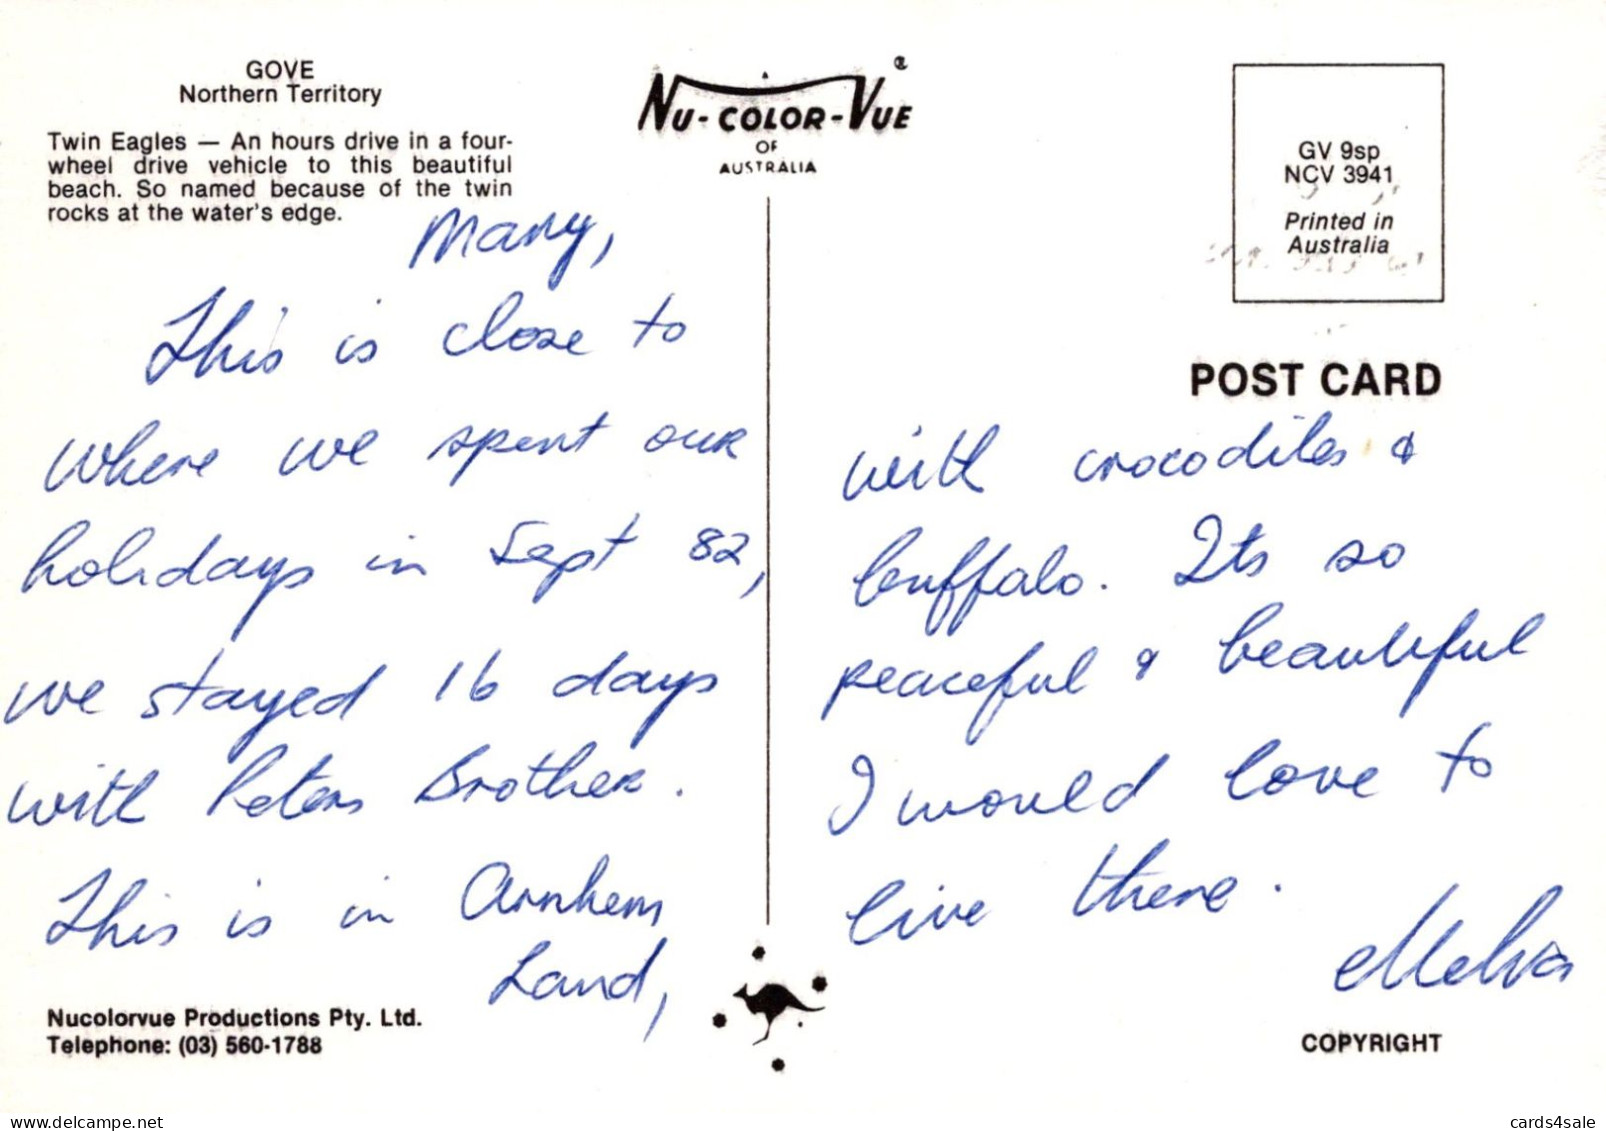 GOVE
Northern Territory
Twin Eagles — An hours drive in a four-
wheel drive vehicle to this beautiful
beach. So named because of the twin
rocks at the water's edge.
NU-COLOR-VUE®
OF
AUSTRALIA
GV 9sp
NCV 3941
Printed in
Australia
POST CARD
Mary,
This is close to
where we spent our
holidays in Sept 82,
we stayed 16 days
with Peters Brother.
This is in Arnhem
Land,
with crocodiles &
buffalo. Its so
peaceful & beautiful
I would love to
live there.
Melva
Nucolorvue Productions Pty. Ltd.
Telephone: (03) 560-1788
COPYRIGHT
cards4sale